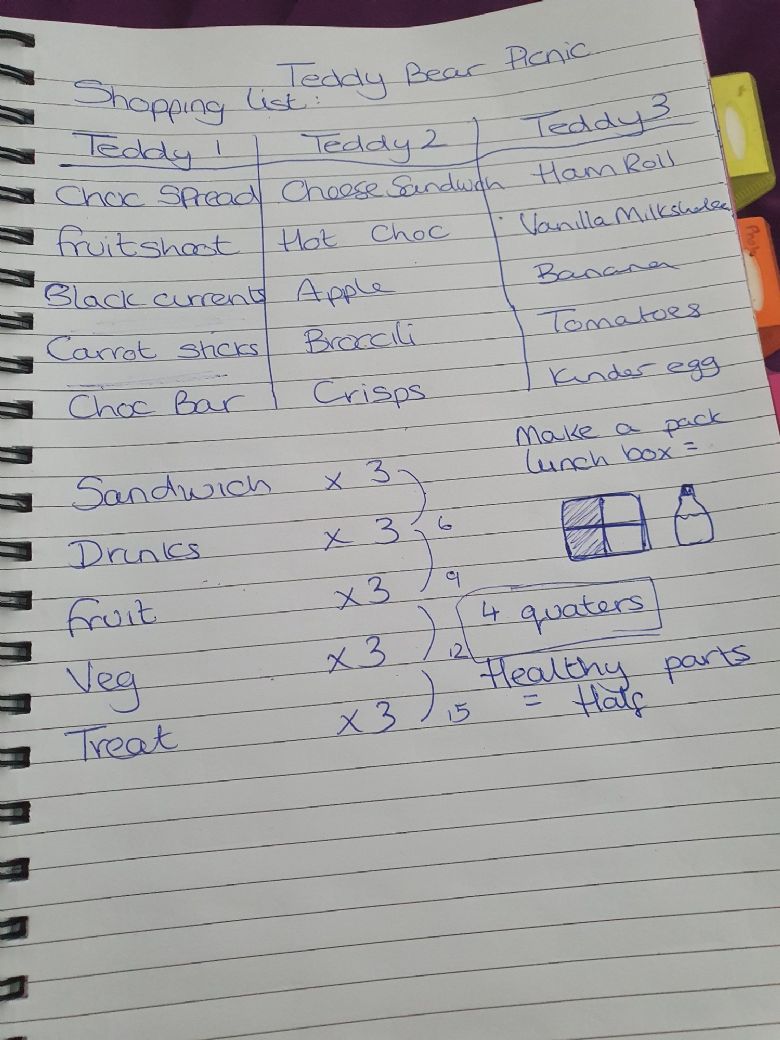 Teddy Bear Picnic
Shopping list:
Teddy 1 Teddy 2 Teddy 3
Choc Spread Cheese Sandwich Ham Roll
fruitshoot Hot Choc Vanilla Milkshake
Black currents Apple Banana
Carrot sticks Broccili Tomatoes
Choc Bar Crisps Kinder egg
Make a pack
lunch box =
Sandwich x 3
Drinks x 3 6
fruit x3 9
4 quaters
Veg x3 12
Healthy parts
= Half
Treat x3 15